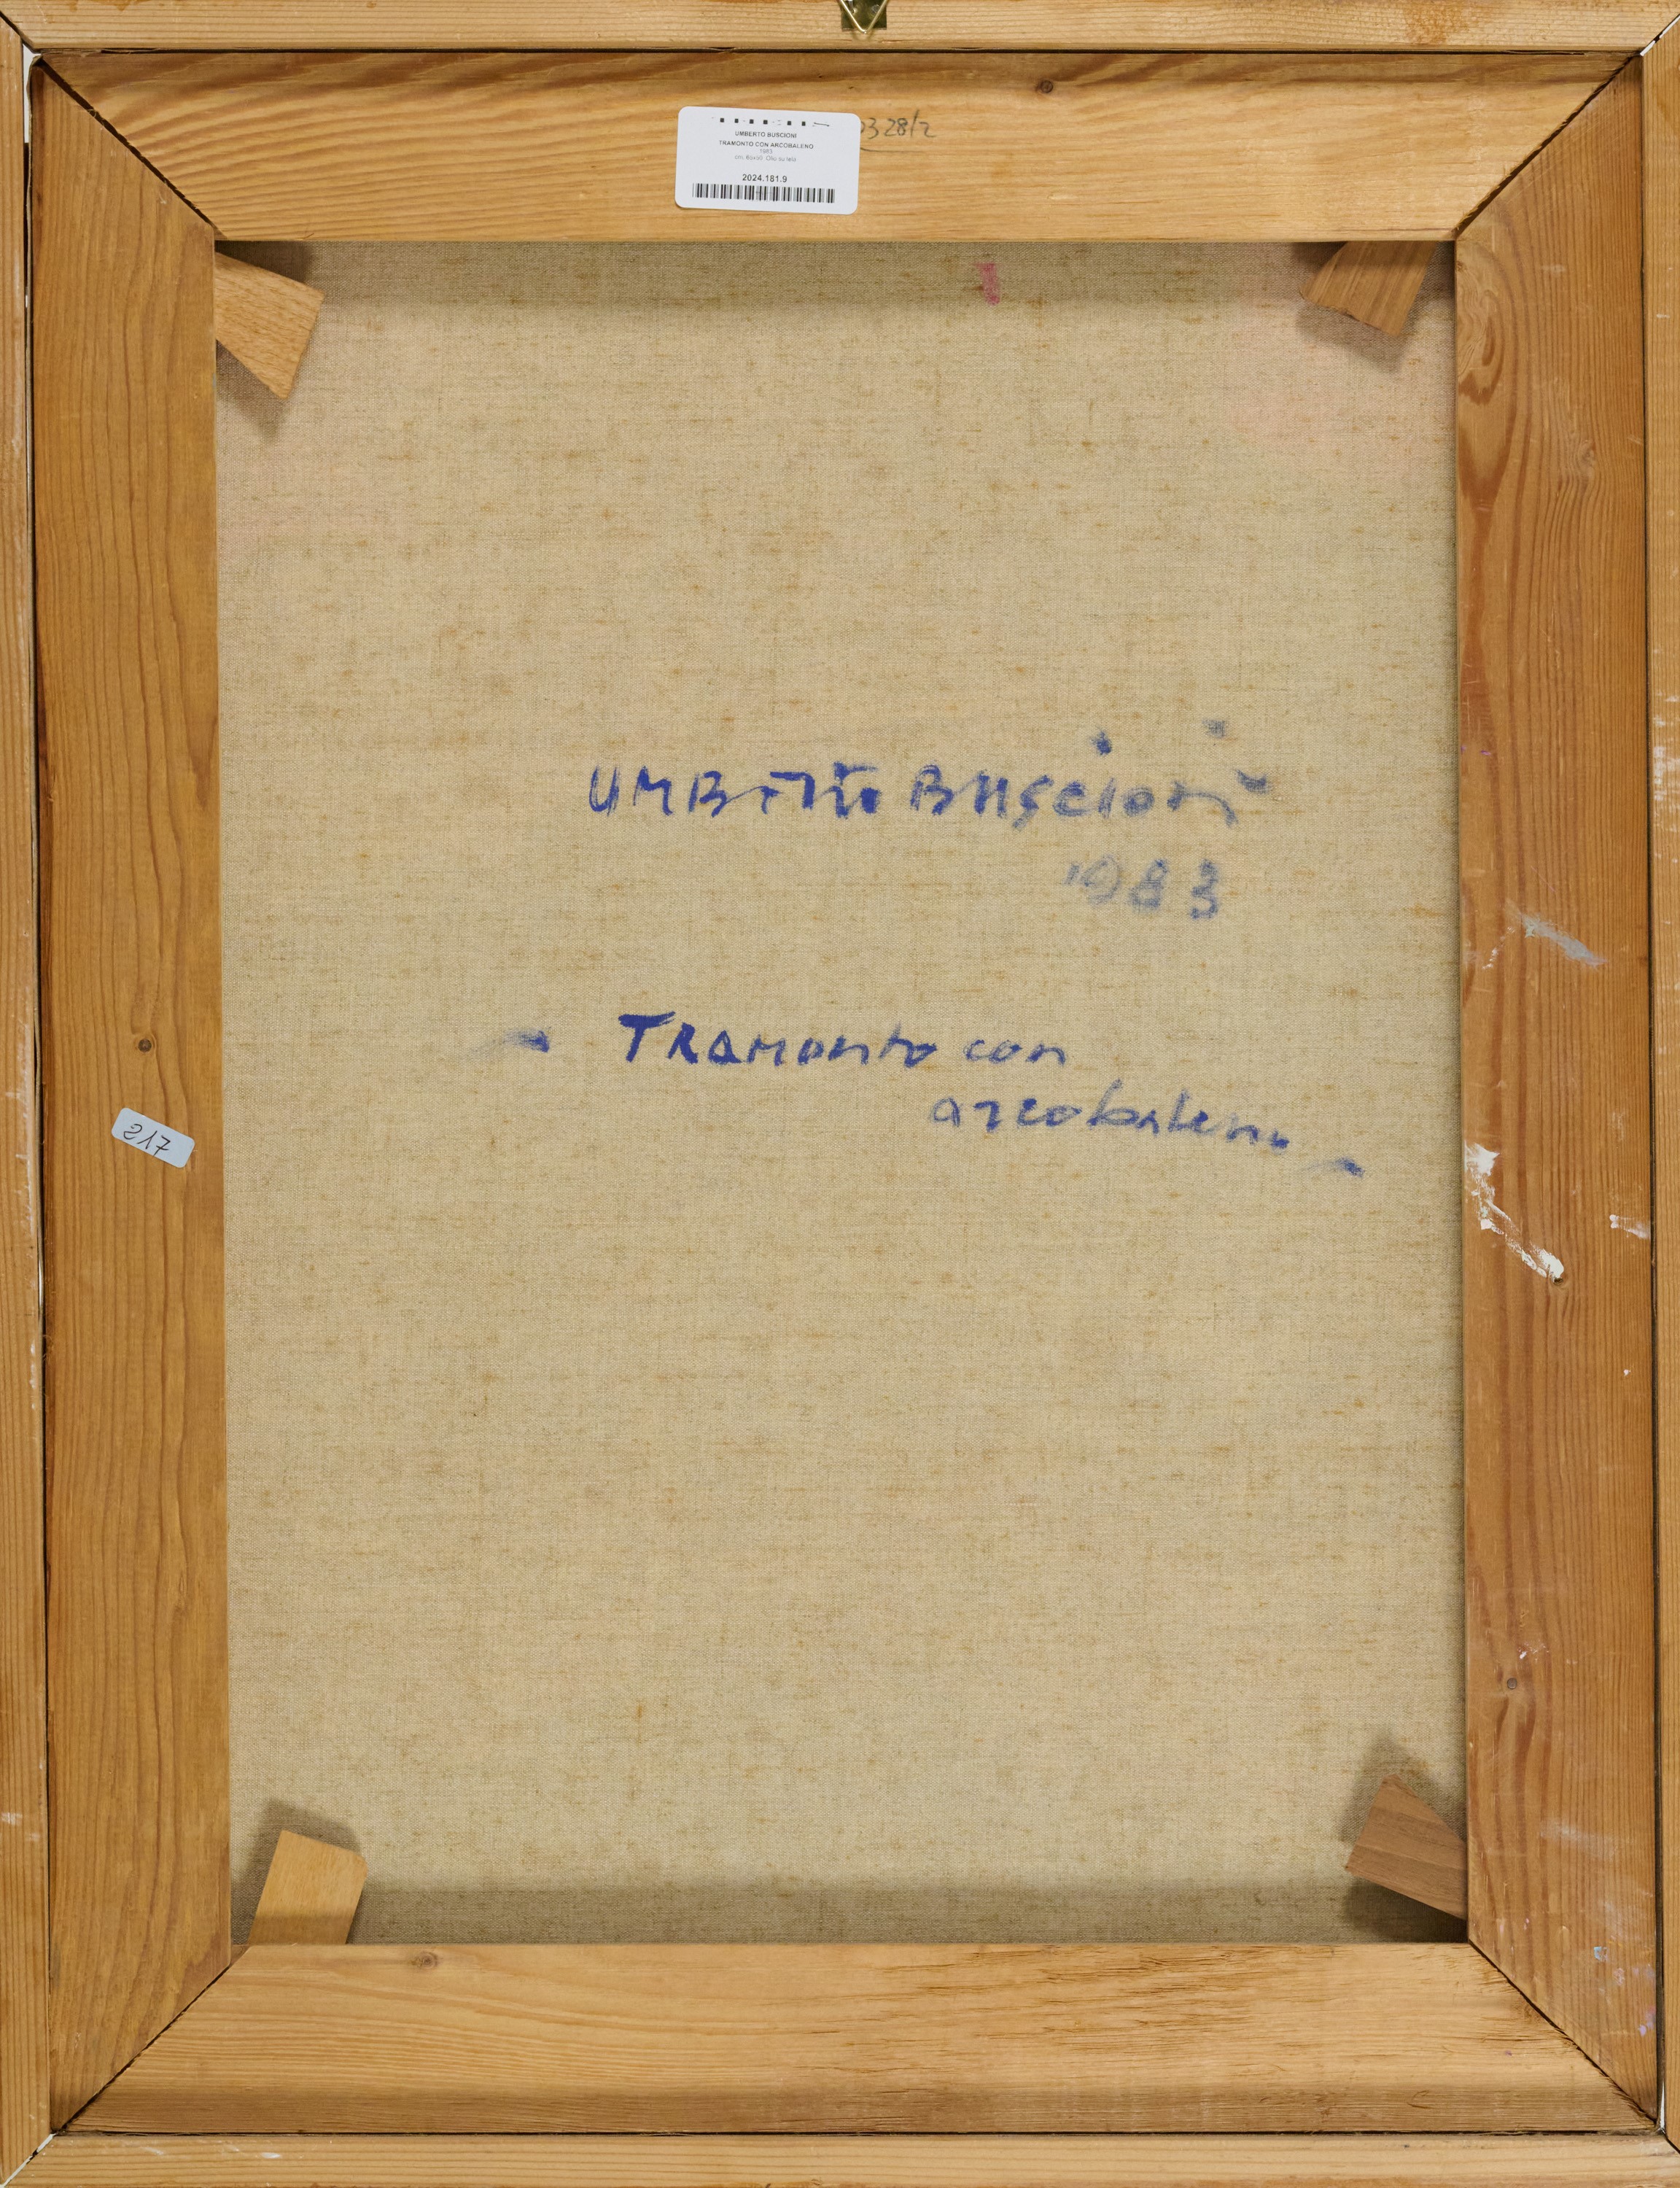 UMBERTO BUSCIONI
TRAMONTO CON ARCOBALENO
1983
cm. 80x60 Olio su tela
2024.181.9
0328/2
UMBERTO BUSCIONi
1983
- TRAMonto con
arcobaleno -
217